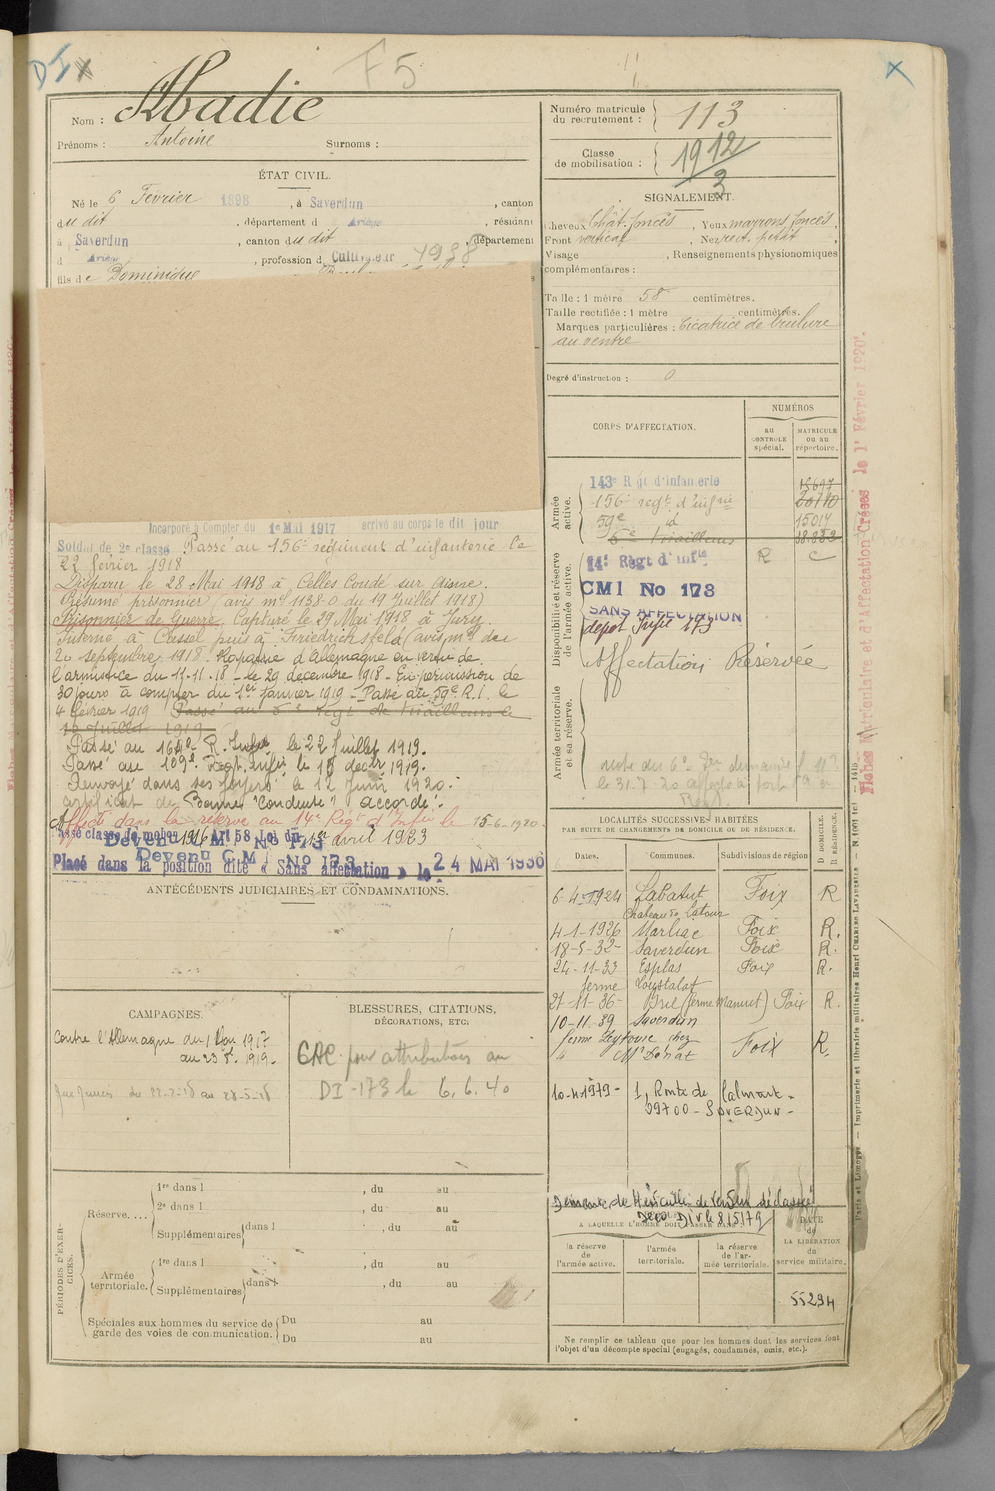 F5
Nom : Abadie
Prénoms : Antoine Surnoms :
ÉTAT CIVIL.
Né le 6 Février 1898, à Saverdun, canton
du dit, département d Ariège, résidant
à Saverdun, canton du dit, département
d Ariège, profession d Cultivateur 1938
fils de Dominique
Incorporé à Compter du 1e Mai 1917 arrivé au corps le dit jour
Soldat de 2e classe Passé au 156e régiment d'infanterie le
22 février 1918
Disparu le 28 Mai 1918 à Celles Condé sur Aisne.
Présumé prisonnier (avis ml 1138-0 du 19 Juillet 1918)
Prisonnier de Guerre, Capturé le 29 Mai 1918 à Jury.
Interné à Cassel puis à Friedrichsfeld (avis ml du
20 septembre 1918. Rapatrié d'Allemagne en vertu de
l'armistice du 11-11-18 - le 29 décembre 1918 - En permission de
30 jours à compter du 1er Janvier 1919 - Passé au 59e R.I. le
4 février 1919 Passé au 6e Régt de Tirailleurs le
Juillet 1919
Passé au 164e R. Infie le 22 Juillet 1919.
Passé au 109e Regt. Infie le 15 décbr 1919.
Renvoyé dans ses foyers le 12 Juin 1920.
certificat de "Bonne Conduite" accordé.
Affecté dans la réserve au 14e Régt d'Infie le 15-6-1920.
Passé classe de mobon 1916 Art 58 Loi du 1er avril 1923
Devenu M No 173
Devenu C M I No 173
Placé dans la position dite « Sans affectation » le 24 MAI 1936
ANTÉCÉDENTS JUDICIAIRES ET CONDAMNATIONS.
CAMPAGNES.
Contre l'Allemagne du 1 Mai 1917
au 23 1919.
du 22-2-18 au 28-5-18
BLESSURES, CITATIONS,
DÉCORATIONS, ETC.
CAC pour attribution au
DI-173 le 6.6.40
PÉRIODES D'EXERCICES.
Réserve....
1re dans l , du au
2e dans l , du au
Supplémentaires dans l , du au
Armée territoriale.
1re dans l , du au
Supplémentaires dans l , du au
Spéciales aux hommes du service de garde des voies de communication.
Du au
Du au
Numéro matricule du recrutement : 113
Classe de mobilisation : 1912/3
SIGNALEMENT.
Cheveux Chât. foncés, Yeux marrons foncés,
Front vertical, Nez rect. petit,
Visage , Renseignements physionomiques
complémentaires :
Taille : 1 mètre 58 centimètres.
Taille rectifiée : 1 mètre centimètres.
Marques particulières : Cicatrice de brûlure
au ventre
Degré d'instruction : 0
CORPS D'AFFECTATION.
NUMÉROS
au CONTROLE spécial.
MATRICULE ou au répertoire.
Armée active.
143e Rgt d'infanterie 15697
156e regt d'infrie 20110
59e id 15014
6e Tirailleurs 38.832
Disponibilité et réserve de l'armée active.
14e Régt d'Infie R C
CMI No 173
SANS AFFECTATION
dépôt Infie 173
Affectation Réservée
Armée territoriale et sa réserve.
LOCALITÉS SUCCESSIVES HABITÉES
PAR SUITE DE CHANGEMENTS DE DOMICILE OU DE RÉSIDENCE.
Dates. Communes. Subdivisions de région D. DOMICILE. R. RÉSIDENCE.
6-4-1924 Labatut Foix R
Chateau de Latour
4-1-1926 Marliac Foix R.
18-5-32- Saverdun Foix R.
24-11-33 Esplas Foix R.
ferme Loustalat
21-11-36- Brie (ferme Manuet) Foix R.
10-11-39 Saverdun
ferme chez
Mr Donat Foix R.
10-4-1979- 1, Route de Calmont -
09700 - SAVERDUN -
Demande de Médaille de Verdun déclassé
Div le 8/5/79
A LAQUELLE L'HOMME DOIT PASSER DANS :
la réserve de l'armée active.
l'armée territoriale.
la réserve de l'armée territoriale.
DATE de LA LIBÉRATION du service militaire.
55294
Ne remplir ce tableau que pour les hommes dont les services font
l'objet d'un décompte spécial (engagés, condamnés, omis, etc.).
Paris et Limoges. — Imprimerie et librairie militaires Henri CHARLES-LAVAUZELLE
Fiches Matriculaire et d'Affectation Créées le 1er Février 1920.